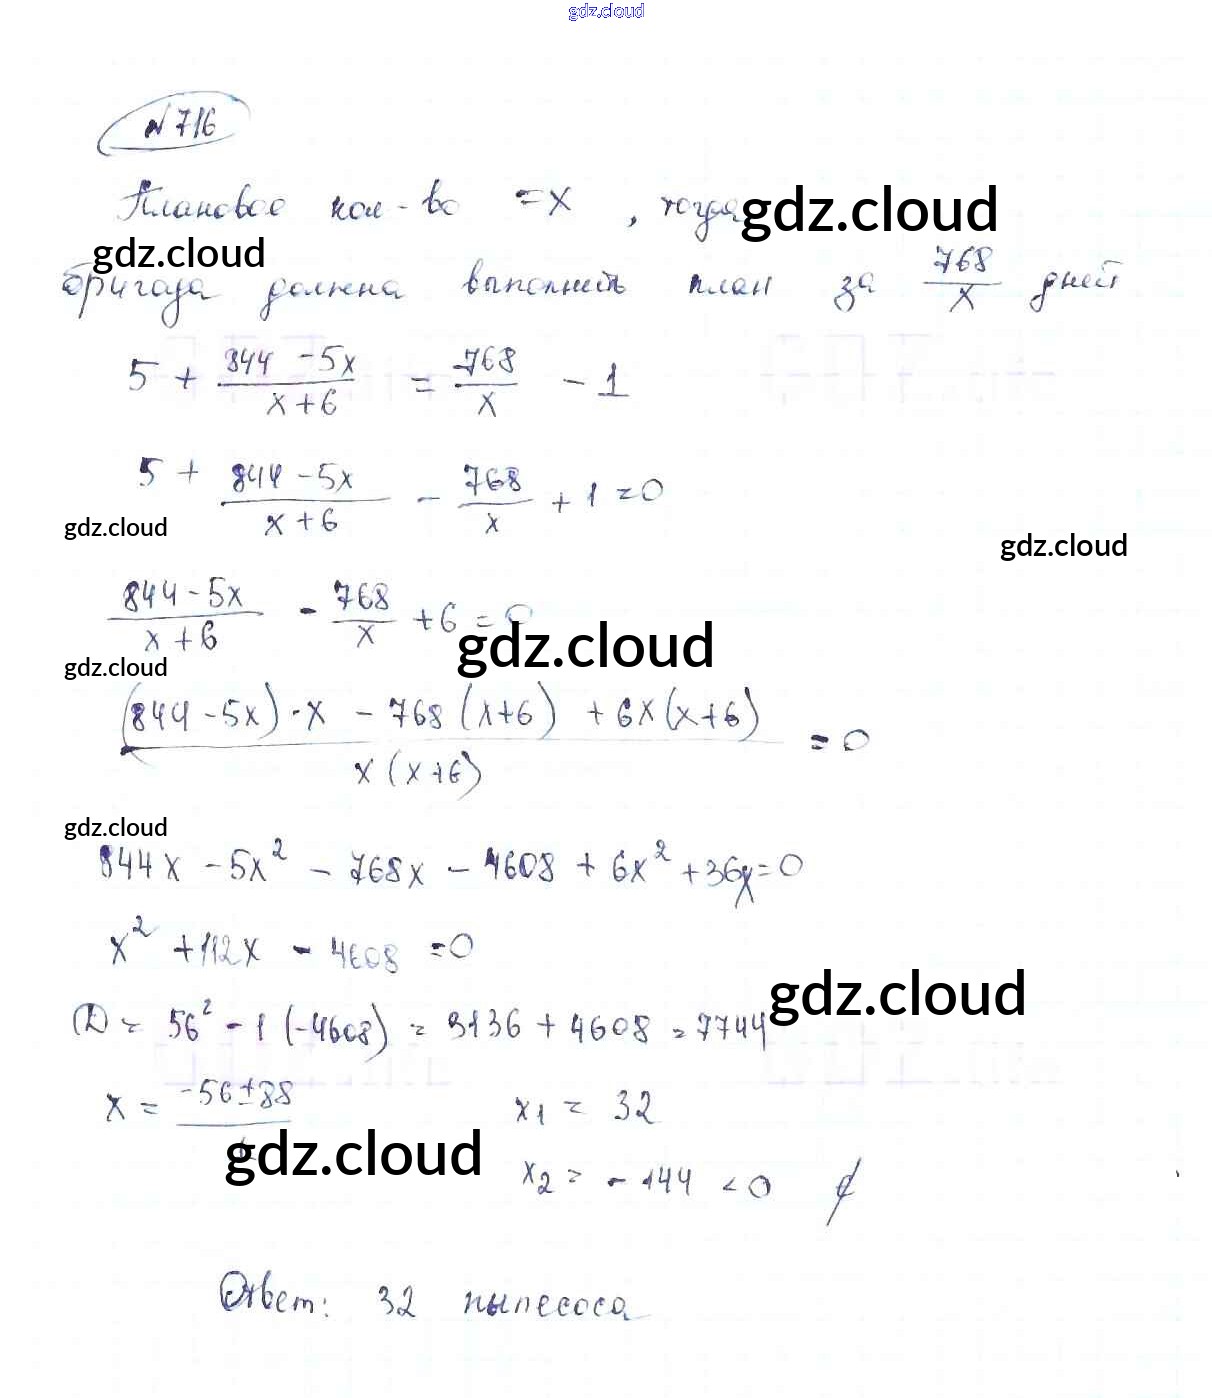 gdz.cloud
№ 716
Плановое кол-во = x , тогда gdz.cloud
gdz.cloud
бригада должна выполнить план за 768/x дней
5 + (844 - 5x)/(x + 6) = 768/x - 1
5 + (844 - 5x)/(x + 6) - 768/x + 1 = 0
gdz.cloud
gdz.cloud
(844 - 5x)/(x + 6) - 768/x + 6 = 0
gdz.cloud
gdz.cloud
((844 - 5x) · x - 768 (x+6) + 6x (x+6))/(x (x+6)) = 0
gdz.cloud
844x - 5x² - 768x - 4608 + 6x² + 36x = 0
x² + 112x - 4608 = 0
gdz.cloud
D = 56² - 1 (-4608) = 3136 + 4608 = 7744
x = (-56 ± 88)/1 x₁ = 32
gdz.cloud
x₂ = - 144 < 0 ∉
Ответ: 32 пылесоса